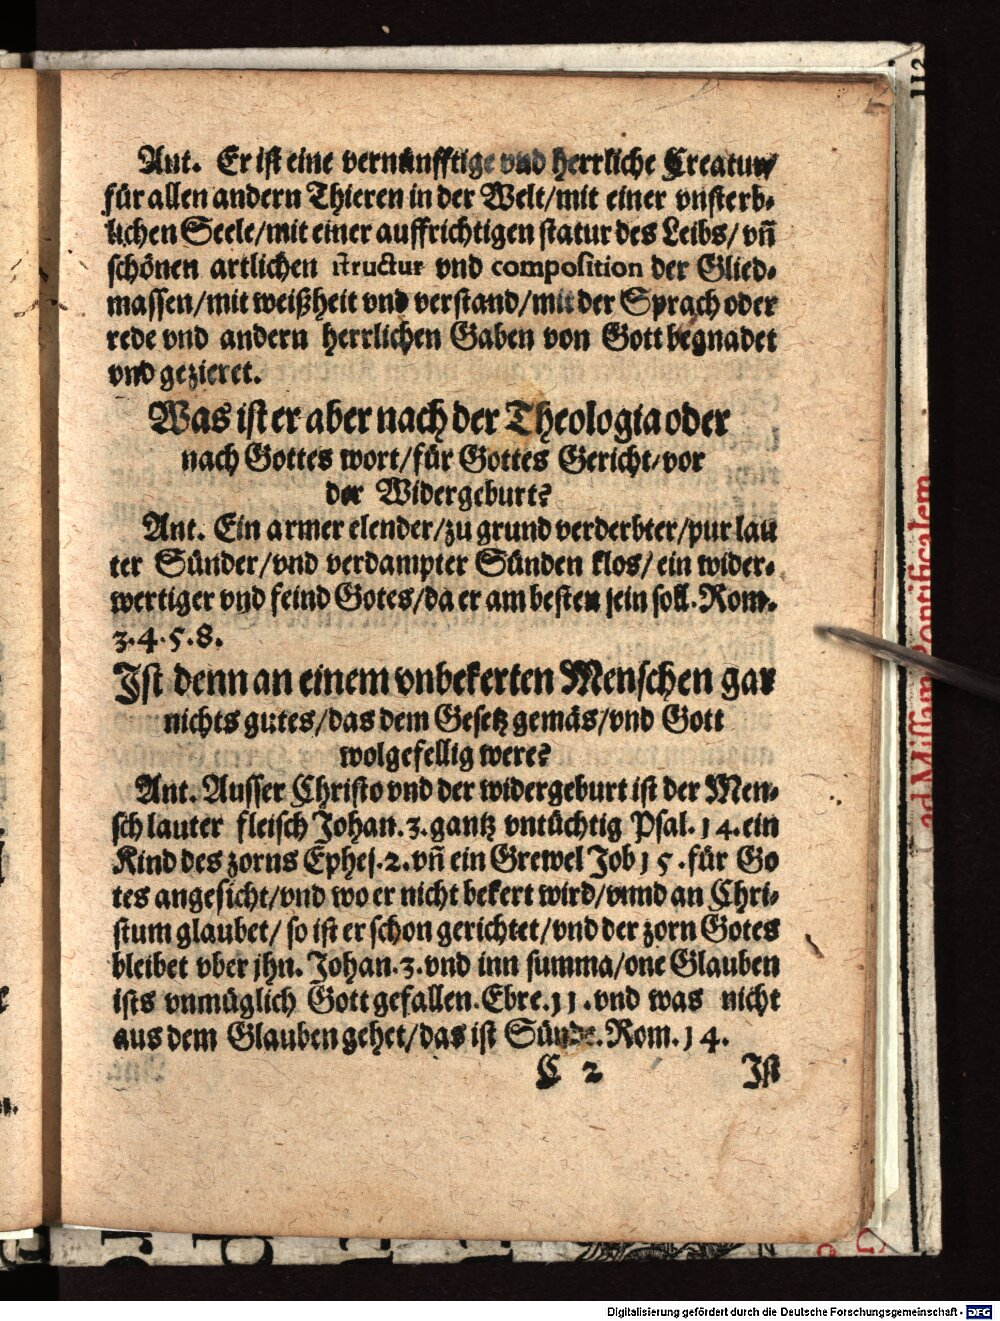 Ant. Er ist eine vernünfftige vnd herrliche Creatur/
für allen andern Thieren in der Welt/mit einer vnsterb-
lichen Seele/mit einer auffrichtigen statur des Leibs/ vñ
schönen artlichen structur vnd composition der Glied-
massen/mit weißheit vnd verstand/mit der Sprach oder
rede vnd andern herrlichen Gaben von Gott begnadet
vnd gezieret.
Was ist er aber nach der Theologia oder
nach Gottes wort/für Gottes Gericht/vor
der Widergeburt?
Ant. Ein armer elender/zu grund verderbter/pur lau
ter Sünder/vnd verdampter Sünden klos/ ein wider-
wertiger vnd feind Gotes/da er am besten sein soll. Rom.
3.4.5.8.
Ist denn an einem vnbekerten Menschen gar
nichts gutes/das dem Gesetz gemäs/vnd Gott
wolgefellig were?
Ant. Ausser Christo vnd der widergeburt ist der Men-
sch lauter fleisch Johan.3.gantz vntüchtig Psal.14.ein
Kind des zorns Ephes.2.vñ ein Grewel Job 15.für Go
tes angesicht/vnd wo er nicht bekert wird/vnnd an Chri-
stum glaubet/ so ist er schon gerichtet/vnd der zorn Gotes
bleibet vber jhn. Johan.3.vnd inn summa/one Glauben
ists vnmüglich Gott gefallen.Ebre.11.vnd was nicht
aus dem Glauben gehet/das ist Sünde.Rom.14.
C 2 Ist
112
ad Missam Pontificalem
Digitalisierung gefördert durch die Deutsche Forschungsgemeinschaft - DFG